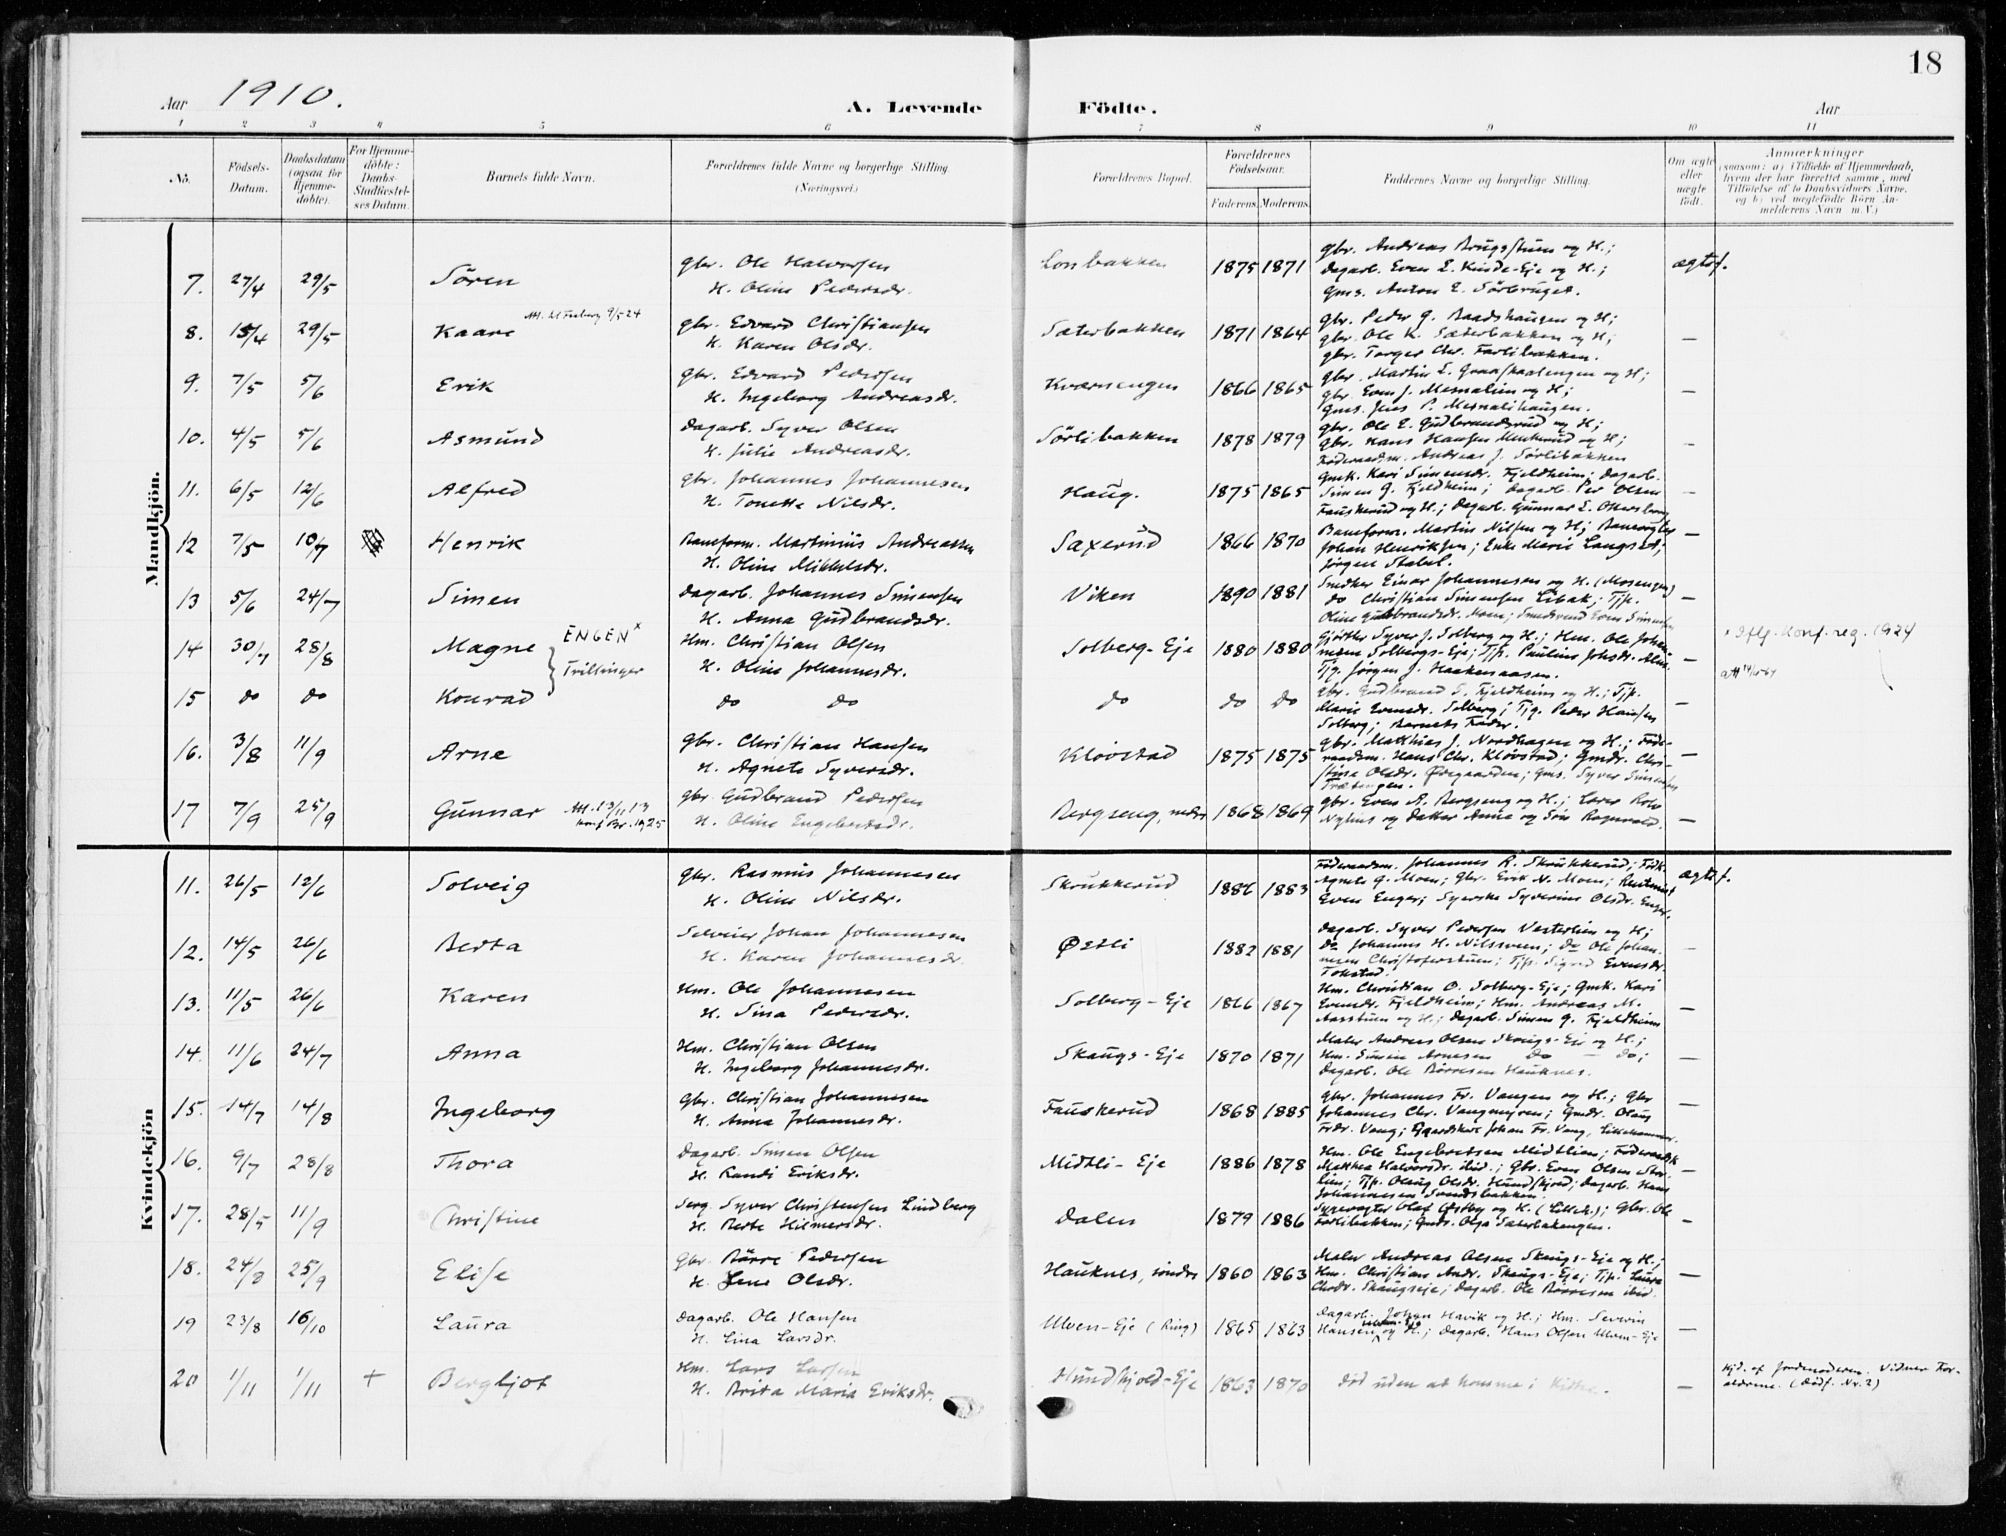 18
Aar 1910. A. Levende Födte. Aar
1 2 3 4 5 6 7 8 9 10 11
No. Födsels-Datum. Daabsdatum (ogsaa for Hjemme-döbte). For Hjemme-döbte: Daabs-Stadfæstelses Datum. Barnets fulde Navn. Forældrenes fulde Navne og borgerlige Stilling (Næringsvei.) Forældrenes Bopæl. Forældrenes Fødselsaar. Faderens. Moderens. Faddernes Navne og borgerlige Stilling. Om ægte eller uægte födt. Anmærkninger (saasom: a) i Tilfælde af Hjemmedaab, hvem der har forrettet samme, med Tilföielse af to Daabsvidners Navne, og b) ved uægtefödte Börn Anmelderens Navn m. V.)
Mandkjön.
7. 27/4 29/5 Sören
gbr. Ole Halvorsen
H. Oline Pedersdr.
Lonbakken 1875 1871
gbr. Andreas Brugsstuen og H.;
Dagarb. Even E. Kinde-Eje og H.;
Gms. Anton E. Sørbruget.
ægtef.
8. 15/4 29/5 Kaare
gbr. Edvard Christiansen
H. Karen Olsdr.
Sæterbakken 1871 1864
gbr. Peder G. Baadshaugen og H;
gbr. Ole K. Sæterbakken og H;
gbr. Torger Chr. Farlibakken.
—
9. 7/5 5/6 Erik
gbr. Edvard Pedersen
H. Ingeborg Andreasdr.
Kværnengen 1866 1865
gbr. Martin E. Graaskaalengen og H;
gbr. Even J. Mesnalien og H;
Gms. Jens P. Mesnalihaugen.
—
10. 4/5 5/6 Asmund
Dagarb. Syver Olsen
H. Julie Andreasdr.
Sørlibakken 1878 1879
gbr. Ole E. Gudbrandsrud og H;
gbr. Hans Hansen Menkerud og H;
Föderaadsm. Andreas J. Sørlibakken
—
11. 6/5 12/6 Alfred
gbr. Johannes Johannesen
H. Tonette Nilsdr.
Haug. 1875 1865
Gmk. Kari Simensdr. Fjeldheim; Dagarb.
Simen G. Fjeldheim; Dagarb. Per Olsen
Fauskerud og H.; Dagarb. Gunnar E. Ottersborg
—
12 7/5 10/7 Henrik
Baneform. Martinius Andreassen
H. Oline Mikkelsdr.
Saxerud 1866 1870
Baneform. Martin Nilsen og H; Banevogter
Johan Henriksen; Enke Marie Langset;
Jørgen Stabel.
—
13 5/6 24/7 Simen
Dagarb. Johannes Simensen
H. Anna Gudbrandsdr.
Viken 1890 1881
Snedker Einar Johannesen og H. (Mosengen)
do Christian Simensen Libak; Tjp.
—
14 30/7 28/8 Magne ENGEN x
Trillinger
Hm. Christian Olsen
H. Oline Johannesdr.
Solberg-Eje 1880 1880
Gjørtler Syver J. Solberg og H.; Hm. Ole Johannesen Solbergs-Eje; Tjp. Pauline Johsdr. Alm.
Tjg. Jørgen J. Haakenaasen.
—
x Iflg. Konf. reg. 1924
15 do do Konrad
do do
do do do
gbr. Gudbrand S. Fjeldheim og H.; Tjp.
Marie Evensdr. Solberg; Tjg. Peder Hansen
Solberg; Barnets Fader.
—
16. 3/8 11/9 Arne
gbr. Christian Hansen
H. Agnete Syversdr.
Kløvstad 1875 1875
gbr. Matthias J. Nordhagen og H.; Föderaadsm. Hans Chr. Kløvstad; Gmdr. Christine Olsdr. Ødegaarden; Gms. Syver Simensen
—
17 7/9 25/9 Gunnar
gbr. Gudbrand Pedersen
H. Oline Engebretsdr.
Bergseng, nedre 1868 1869
gbr. Even A. Bergseng og H.; Lærer
Nyhus og Datter Anna og Søn Ragnvald.
—
Kvindekjön
11. 26/5 12/6 Solveig
gbr. Rasmus Johannesen
H. Oline Nilsdr.
Skrukkerud 1886 1883
Föderaadsm. Johannes R. Skrukkerud; Födk.
Agnete G. Moen; gbr. Erik N. Moen;
Even Enger; Syerske Syverine Olsdr. Enger.
ægtef.
12. 14/5 26/6 Berta
Selveier Johan Johannesen
H. Karen Johannesdr.
Østli 1882 1881
Dagarb. Syver Pedersen Vesterlien og H;
do Johannes H. Nilssveen; do Ole Johannesen Christoferstuen; Tjp. Sigrid Evensdr.
Tokstad.
—
13. 11/5 26/6 Karen
Hm. Ole Johannesen
H. Sina Pedersdr.
Solberg-Eje 1866 1867
Hm. Christian O. Solberg-Eje; Gmk. Kari
Evensdr. Fjeldheim; Hm. Andreas M.
Aasstuen og H.; Dagarb. Simen G. Fjeldheim
—
14. 11/6 24/7 Anna
Hm. Christian Olsen
H. Ingeborg Johannesdr.
Skaugs-Eje 1870 1871
Maler Andreas Olsen Skaugs-Eje og H.;
Hm. Simen Arnesen do — do;
Dagarb. Ole Børresen Hauknes.
—
15. 14/7 14/8 Ingeborg
gbr. Christian Johannesen
H. Anna Johannesdr.
Fauskerud 1868 1885
gbr. Johannes Fr. Vangen og H.; gbr
Johannes Chr. Vangmyren; Gmdr. Olaug
Frdr. Vang; Gaardskar Johan Fr. Vang, Lillehammer.
—
16. 9/7 28/8 Thora
Dagarb. Simen Olsen
H. Randi Eriksdr.
Midtli-Eje 1886 1878
Hm. Ole Engebretsen Midtlien; Föderaadsk
Mathea Halvorsdr. ibid.; Gbr. Even Olsen Storlien; Tjp. Olaug Olsdr. Hundskjold; Dagarb. Hans
Johannesen Svendsbakken.
—
17. 28/5 11/9 Christine
Serg. Syver Christensen Lindberg
H. Berte Hilmersdr.
Dalen 1879 1886
Olaf Østby og H. (Lilleh.); Gbr. Ole
Farlibakken; Gmdr. Olga Sæterbakengen.
—
18. 24/8 25/9 Elise
Gbr. Børre Pedersen
H. Lene Olsdr.
Hauknes, søndre 1860 1863
Maler Andreas Olsen Skaugs-Eje og H.;
Hm. Christian Andr. Skaugs-Eje; Tjp. Laura
Chrdr. Skaugseje; Dagarb. Ole Børresen ibid.
—
19 23/8 16/10 Laura
Dagarb. Ole Hansen
H. Lina Larsdr.
Ulven-Eje (Ring) 1865 1863
Dagarb. Johan Havik og H.; Hm. Severin
Hansen og H.; Dagarb. Hans Olsen Ulven-Eje
—
20 1/11 1/11 + Bergljot
Hm. Lars Larsen
H. Brita Maria Eriksdr.
Hundskjold-Eje 1863 1870
død uden at komme i Kirke.
—
Hjd. af Jordmoderen. Vidner Forældrene. (Dødf. Nr. 2)